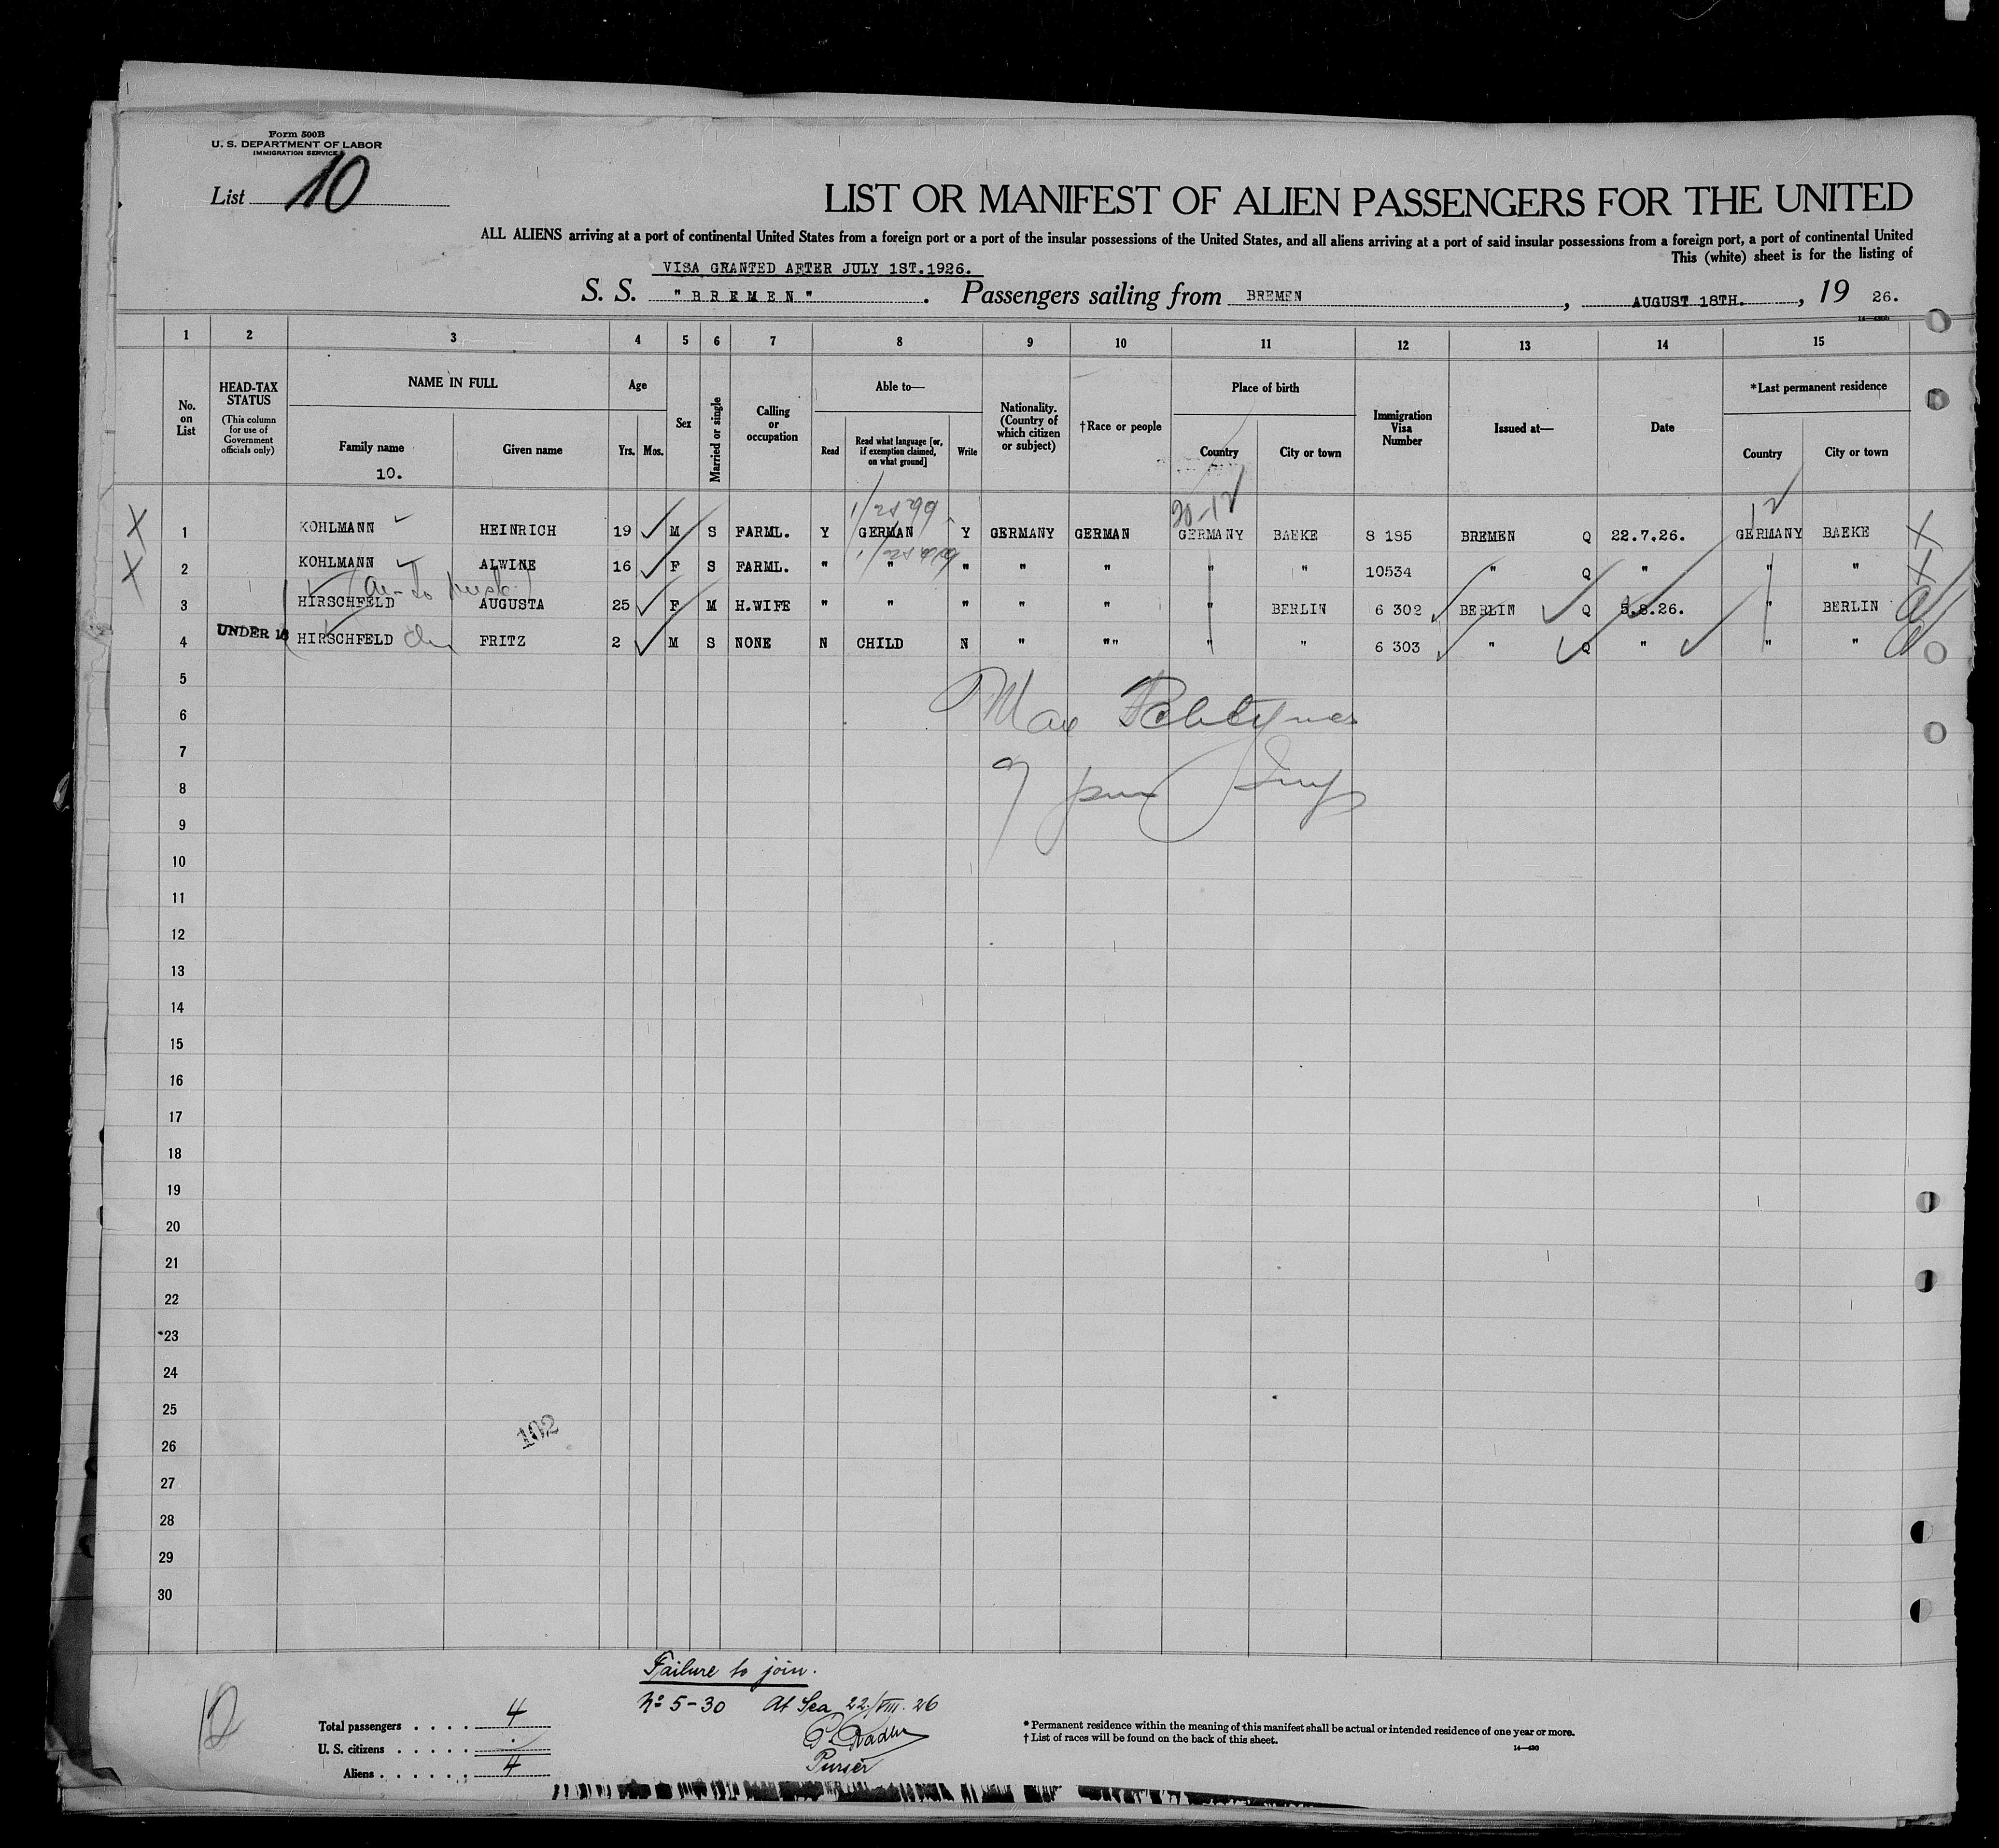 Form 500B
U. S. DEPARTMENT OF LABOR
IMMIGRATION SERVICE
List 10
LIST OR MANIFEST OF ALIEN PASSENGERS FOR THE UNITED
ALL ALIENS arriving at a port of continental United States from a foreign port or a port of the insular possessions of the United States, and all aliens arriving at a port of said insular possessions from a foreign port, a port of continental United
This (white) sheet is for the listing of
VISA GRANTED AFTER JULY 1ST.1926.
S. S. "BREMEN". Passengers sailing from BREMEN, AUGUST 18TH., 19 26.
1 2 3 4 5 6 7 8 9 10 11 12 13 14 15
No. on List
HEAD-TAX STATUS
(This column for use of Government officials only)
NAME IN FULL
Family name
10.
Given name
Age
Yrs. Mos.
Sex
Married or single
Calling or occupation
Able to—
Read
Read what language [or, if exemption claimed, on what ground]
Write
Nationality. (Country of which citizen or subject)
†Race or people
Place of birth
Country
City or town
Immigration Visa Number
Issued at—
Date
*Last permanent residence
Country
City or town
20-12
12
X 1 KOHLMANN HEINRICH 19 M S FARML. Y GERMAN Y GERMANY GERMAN GERMANY BAEKE 8 185 BREMEN Q 22.7.26. GERMANY BAEKE X
X 2 KOHLMANN ALWINE 16 F S FARML. " " " " " " " 10534 " Q " " " X
3 HIRSCHFELD AUGUSTA 25 F M H.WIFE " " " " " " BERLIN 6 302 BERLIN Q 5.8.26. " BERLIN
4 UNDER 16 HIRSCHFELD FRITZ 2 M S NONE N CHILD N " "" " " 6 303 " Q " " "
5
6 Max
7
8
9
10
11
12
13
14
15
16
17
18
19
20
21
22
23
24
25
26
27
28
29
30
102
Failure to join.
No 5-30 At Sea 22/VIII. 26
Purser
Total passengers . . . . 4
U. S. citizens . . . . .
Aliens . . . . . . 4
* Permanent residence within the meaning of this manifest shall be actual or intended residence of one year or more.
† List of races will be found on the back of this sheet.